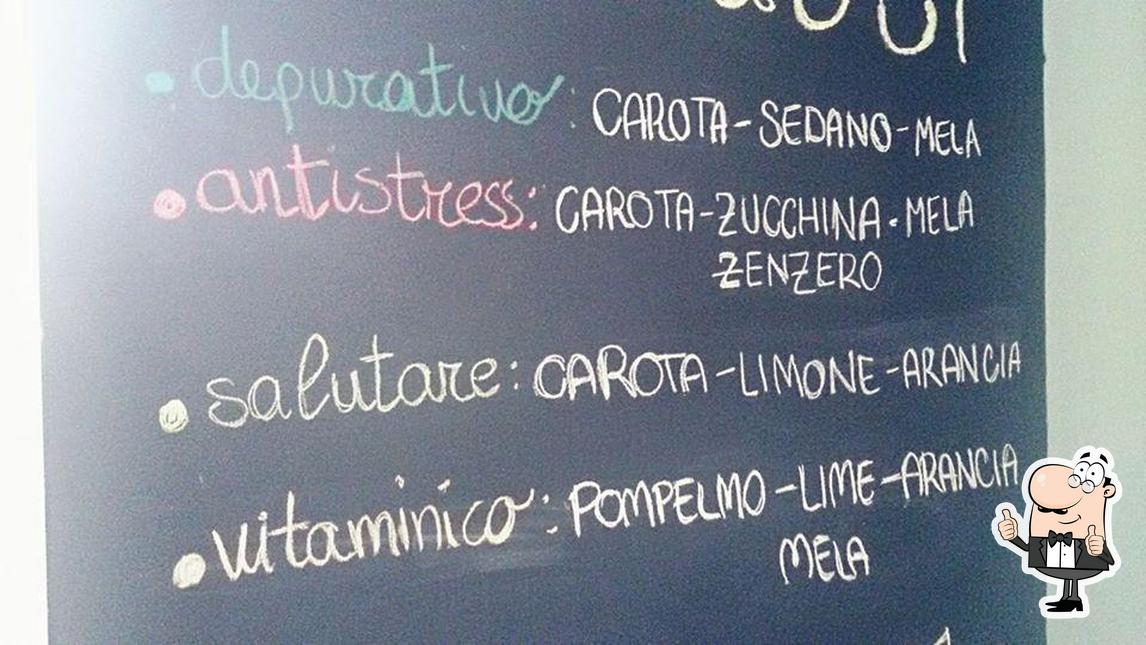 • depurativo: CAROTA-SEDANO-MELA
• antistress: CAROTA-ZUCCHINA-MELA
ZENZERO
• salutare: CAROTA-LIMONE-ARANCIA
• vitaminico: POMPELMO-LIME-ARANCIA
MELA